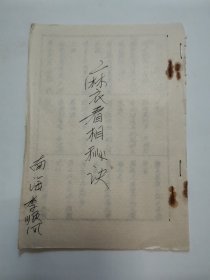 麻衣看相秘诀
南海李